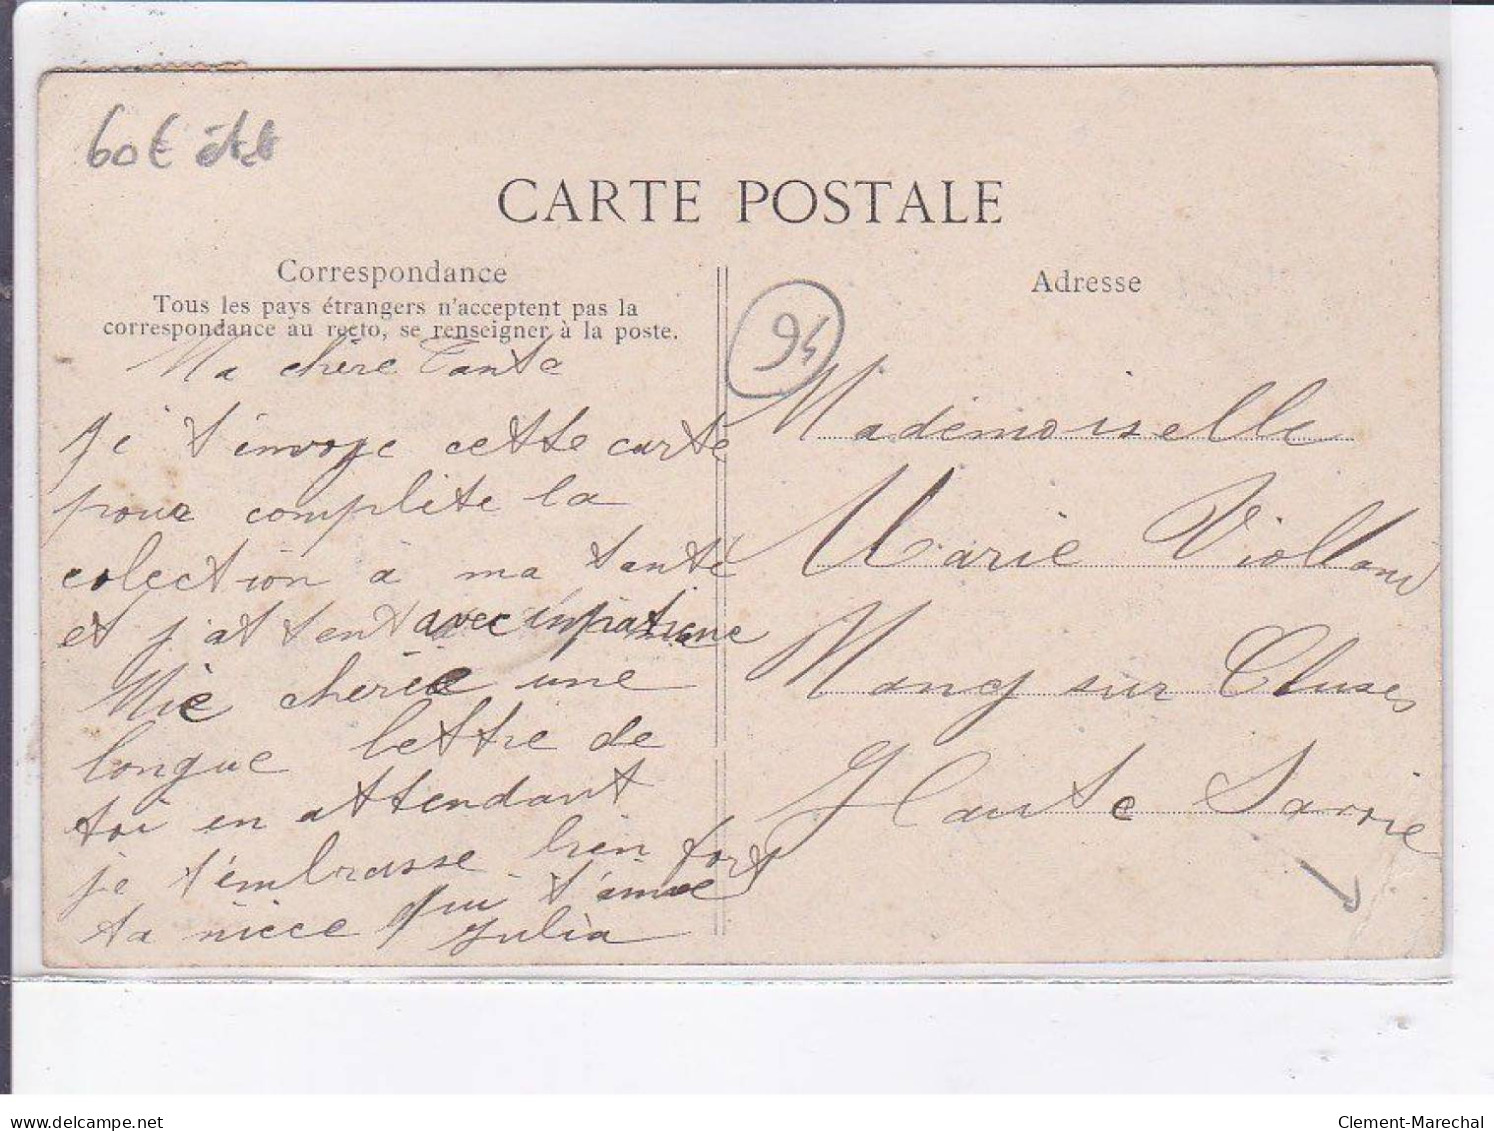 60€ état
CARTE POSTALE
Correspondance
Tous les pays étrangers n'acceptent pas la
correspondance au recto, se renseigner à la poste.
Ma chère Tante
Je t'envoye cette carte
pour complite la
colection à ma tante
et j'attent avec impatiene
Mie cherie une
longue lettre de
toi en attendant
je t'embrasse bien fort
ta niece qui t'aime
Julia
Adresse
94
Mademoiselle
Marie Violland
Nancy sur Cluses
Haute Savoie
delcampe.net
Clement-Marechal